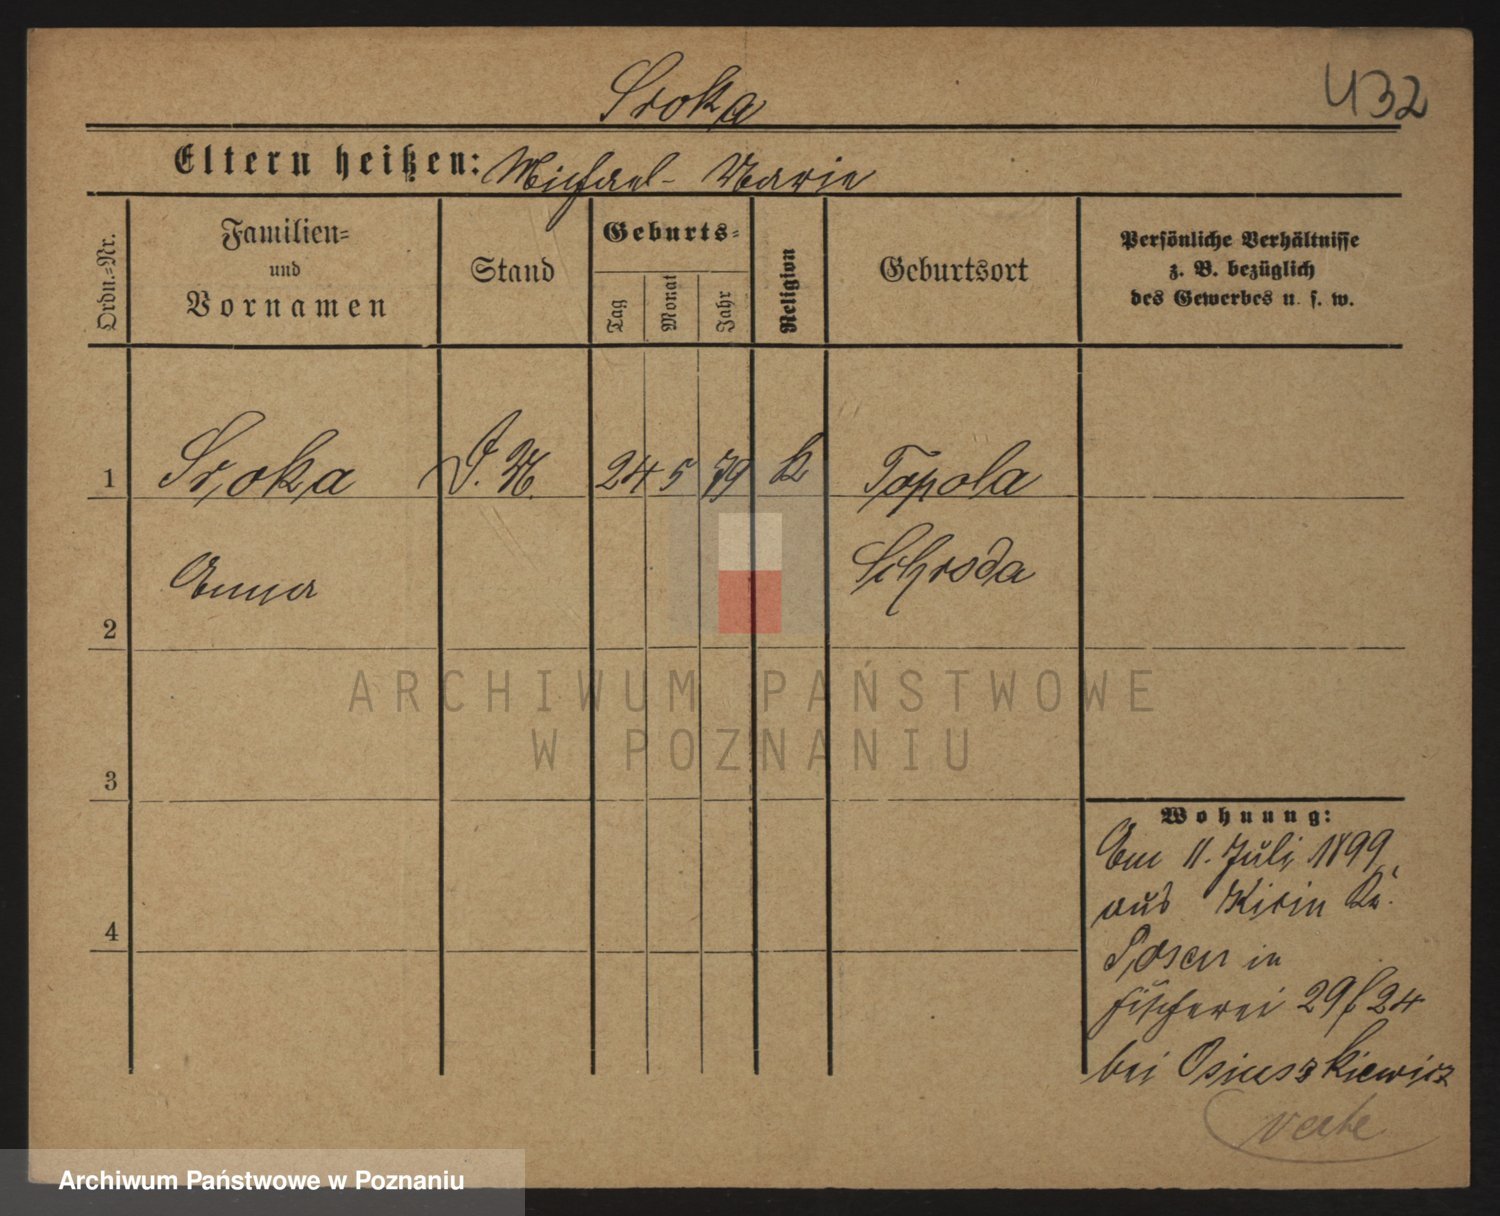 Sroka
432
Eltern heißen: Michael - Marie
Ordn.-Nr.
Familien-
und
Vornamen
Stand
Geburts-
Tag
Monat
Jahr
Religion
Geburtsort
Persönliche Verhältnisse
z. B. bezüglich
des Gewerbes u. s. w.
1
Sroka
D. M.
24 5 79
k
Topola
Anna
Schroda
2
3
4
Wohnung:
Am 11. Juli 1899
aus Kr.
Posen in
Fischerei 29/24
bei
verte
ARCHIWUM PAŃSTWOWE
W POZNANIU
Archiwum Państwowe w Poznaniu